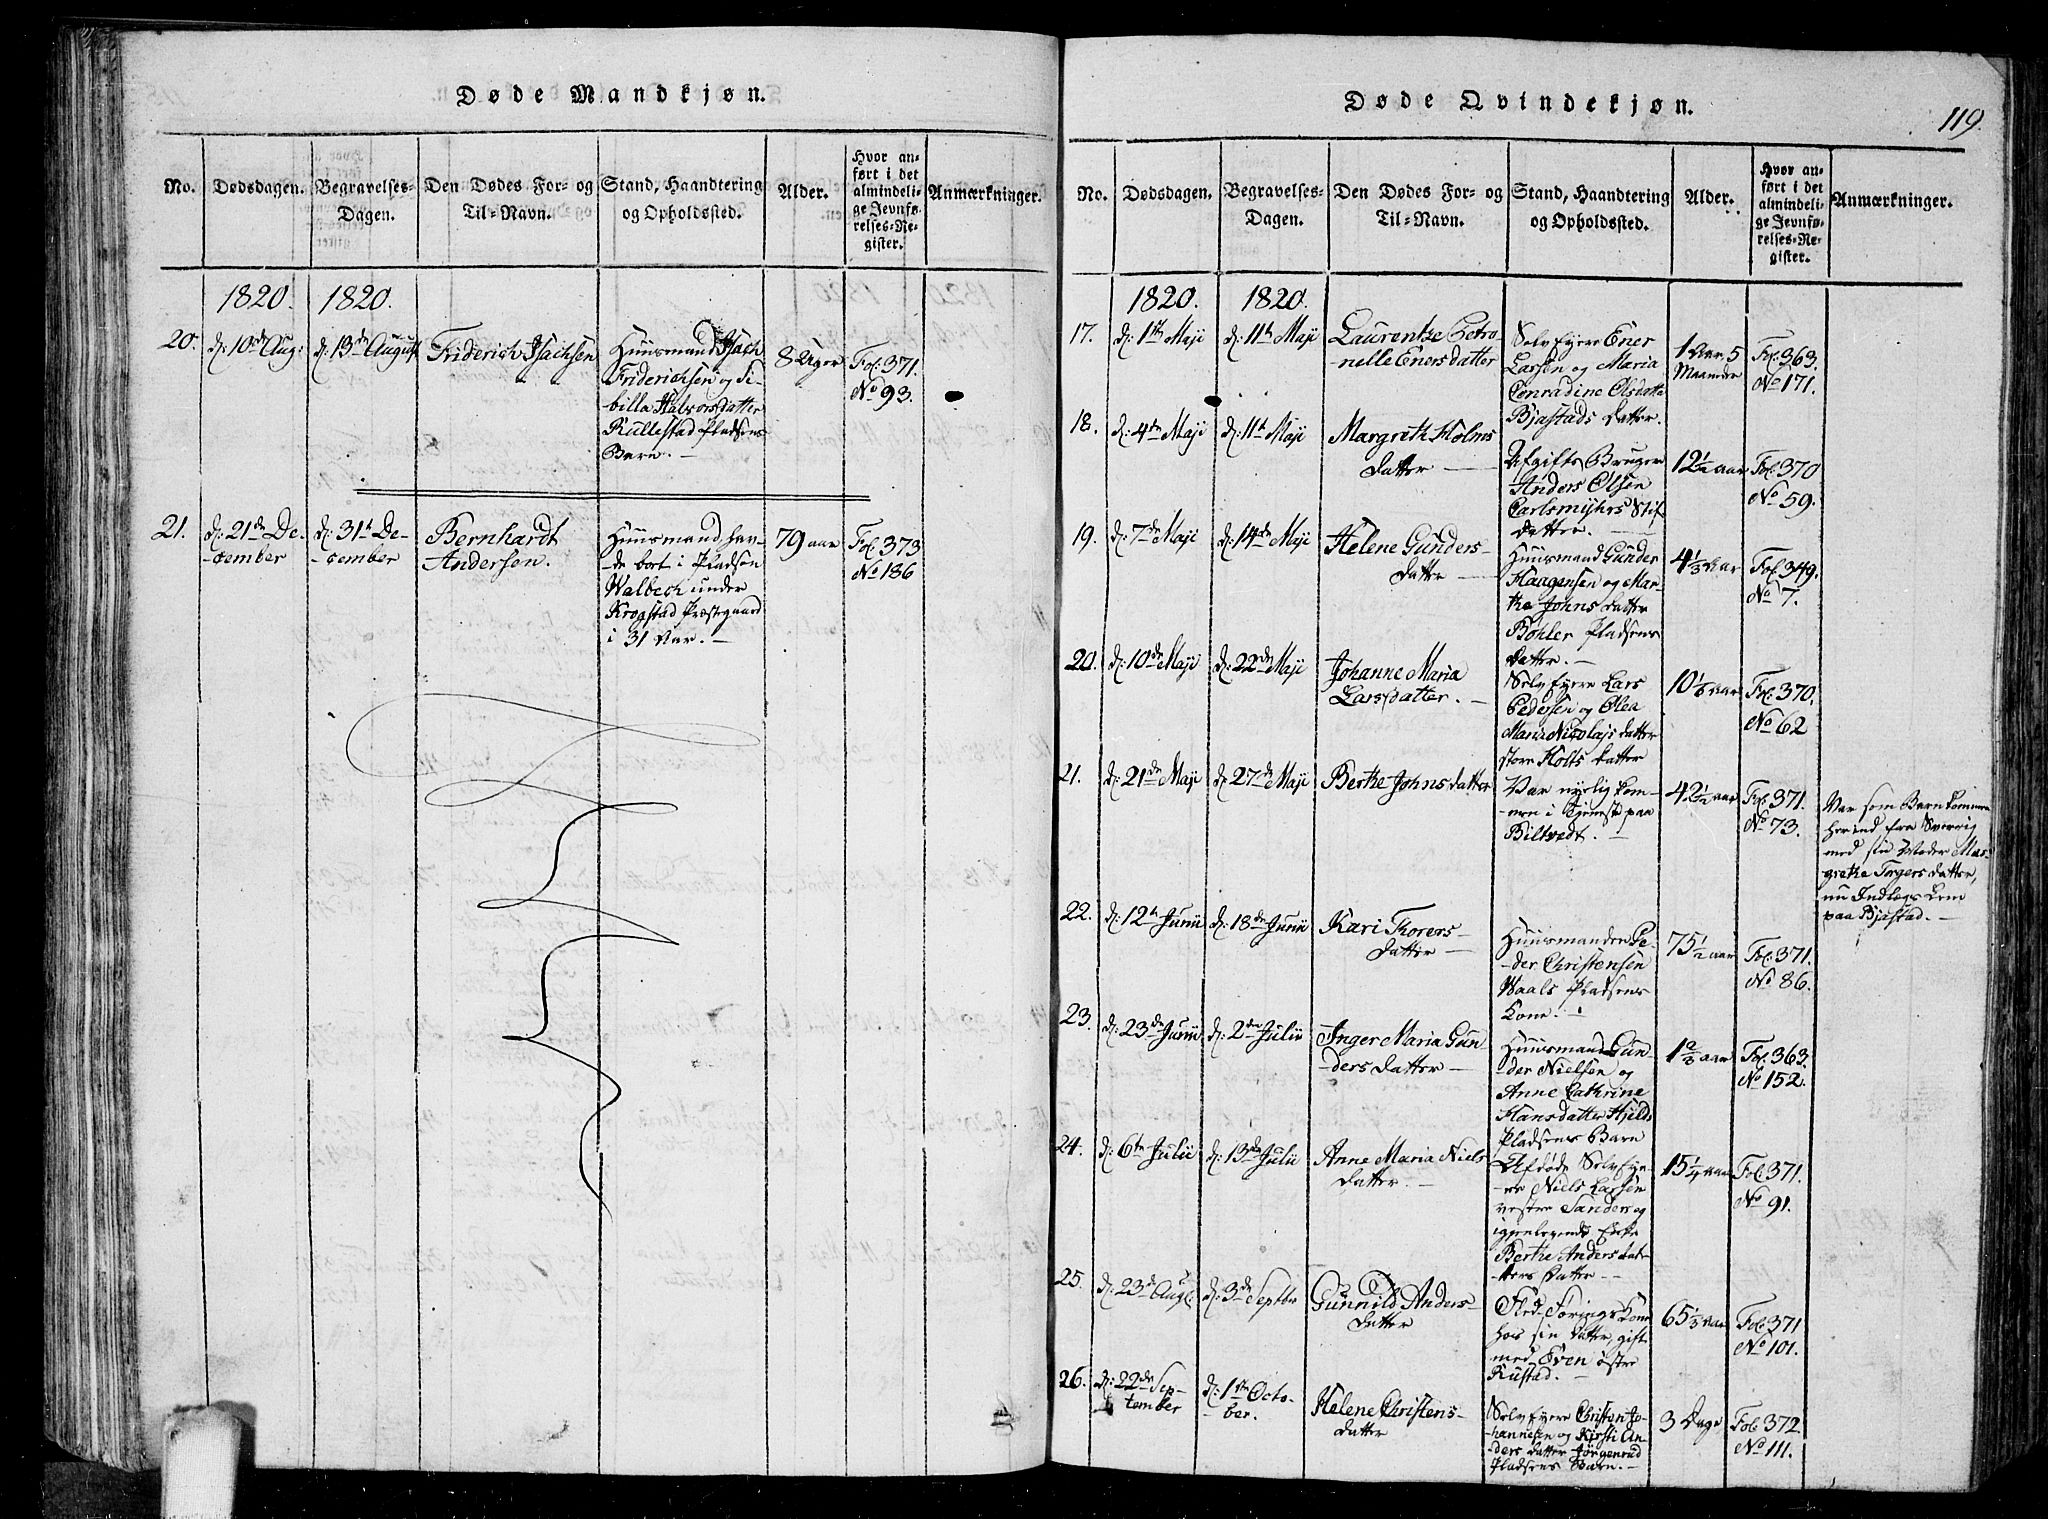 Døde Mandkjøn.
No.
Dødsdagen.
Begravelses-
Dagen.
Den Dødes For- og
Til-Navn.
Stand, Haandtering
og Opholdssted.
Alder.
Hvor an-
ført i det
almindeli-
ge Jevnfø-
relses-Re-
gister.
Anmærkninger.
1820. 1820.
20. d: 10de Aug: d: 13de August Friderich Isachsen
Huusmand Isach
Friderichsen og Si-
billa Halvorsdatter
Kullestad Pladsens
Barn. —
8 Uger
Fol: 371.
No 93.
21. d: 21de De-
cember
d: 31te De-
cember
Bernhardt
Andersen.
Huusmand, hav-
de bort i Pladsen
Walbech under
Krogstad Præstegaard
i 31 Aar. —
79 aar
Fol: 373
No 186
Døde Qvindekjøn.
119.
No.
Dødsdagen.
Begravelses-
Dagen.
Den Dødes For- og
Til-Navn.
Stand, Haandtering
og Opholdssted.
Alder.
Hvor an-
ført i det
almindeli-
ge Jevnfø-
relses-Re-
gister.
Anmærkninger.
1820. 1820.
17. d: 1ste Maji d: 11te Maji Laurentze Petro-
nelle Enersdatter
Selveyere Ener
Larsen og Maria
Conradine Olsdatter
Bjastads datter.
1 Aar 5
Maaneder
Fol: 363.
No 171.
18. d: 4de Maji d: 11te Maji Margreth Holms
datter —
Afgifts Bruger
Anders Olsen
Carlsmyhrs Stif
datter. —
12½ aar
Fol: 370
No 59.
19. d: 7de Maji d: 14de Maji Helene Gunders-
datter —
Huusmand Gunder
Haagensen og Mar-
the Johnsdatter
Bøhler Pladsens
datter. —
4⅓ Aar
Fol: 349.
No 7.
20. d: 10de Maji d: 22de Maji Johanne Maria
Larsdatter. —
Selveyere Lars
Pedersen og Olea
Marie Nicolajsdatter
store Holts datter
Fol: 370.
No 62
21. d: 21de Maji d: 27de Maji Berthe Johnsdatter
Var nyelig kom-
men i Tjeneste paa
Biltvedt. —
42½ aar
Fol: 371.
No 73.
Var som Barn kommen
her ind fra Sverrig
med sin Moder Mar-
grethe Torgersdatter,
nu Indlægs Lem
paa Bjastad. —
22. d: 12te Junii d: 18de Junii Kari Thorers-
datter —
Huusmanden Pe-
der Christensen
Waals Pladsens
Kone. —
75½ aar
Fol: 371.
No 86.
23. d: 23de Junii d: 2den Julii Inger Maria Gun-
dersdatter —
Huusmand Gun-
der Nielsen og
Anne Cathrine
Hansdatter Hjelds
Pladsens Barn
1⅔ aar
Fol: 363.
No 152.
24. d: 6te Julii d: 13de Julii Anne Maria Niels
datter. —
Afdøde Selvey-
ere Niels Larsen
vestre Sander og
igjenlevende Enke
Berthe Andersdat-
ters Datter —
15¼ aar
Fol: 371.
No 91.
25. d: 23de Aug: d: 3de Septbr Gunnild Anders-
datter
Flød-Førings Kone
hos sin datter, gift
med Even østre
Rustad. —
65⅓ aar
Fol: 371
No 101.
26. d: 22de Sep-
tember
d: 1ste Octo-
ber.
Helene Christens-
datter
Selveyere Christen Jo-
hannesen og Kirsti An-
ders datter Jørgenrud
Pladsens Barn. —
3 Dage
Fol: 372.
No 111.